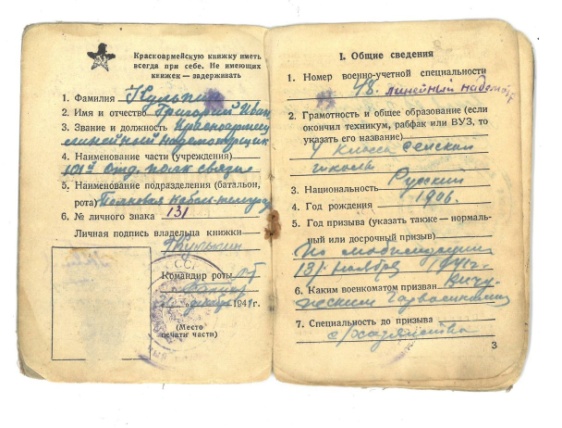 Красноармейскую книжку иметь
всегда при себе. Не имеющих
книжек — задерживать
1. Фамилия Кулькин
2. Имя и отчество Григорий Иван
3. Звание и должность Красноармеец
линейный надсмотрщик
4. Наименование части (учреждения)
1017 отд. полк связи
5. Наименование подразделения (батальон,
рота)
6. № личного знака 131
Личная подпись владельца книжки
Кулькин
Командир роты
1941 г.
(Место
печати части)
I. Общие сведения
1. Номер военно-учетной специальности
48. линейный надсмотр
2. Грамотность и общее образование (если
окончил техникум, рабфак или ВУЗ, то
указать его название)
4 класса сельской
школы
3. Национальность Русский
4. Год рождения 1906.
5. Год призыва (указать также — нормаль-
ный или досрочный призыв)
По мобилизации
ноября 1941 г.
6. Каким военкоматом призван
7. Специальность до призыва
3